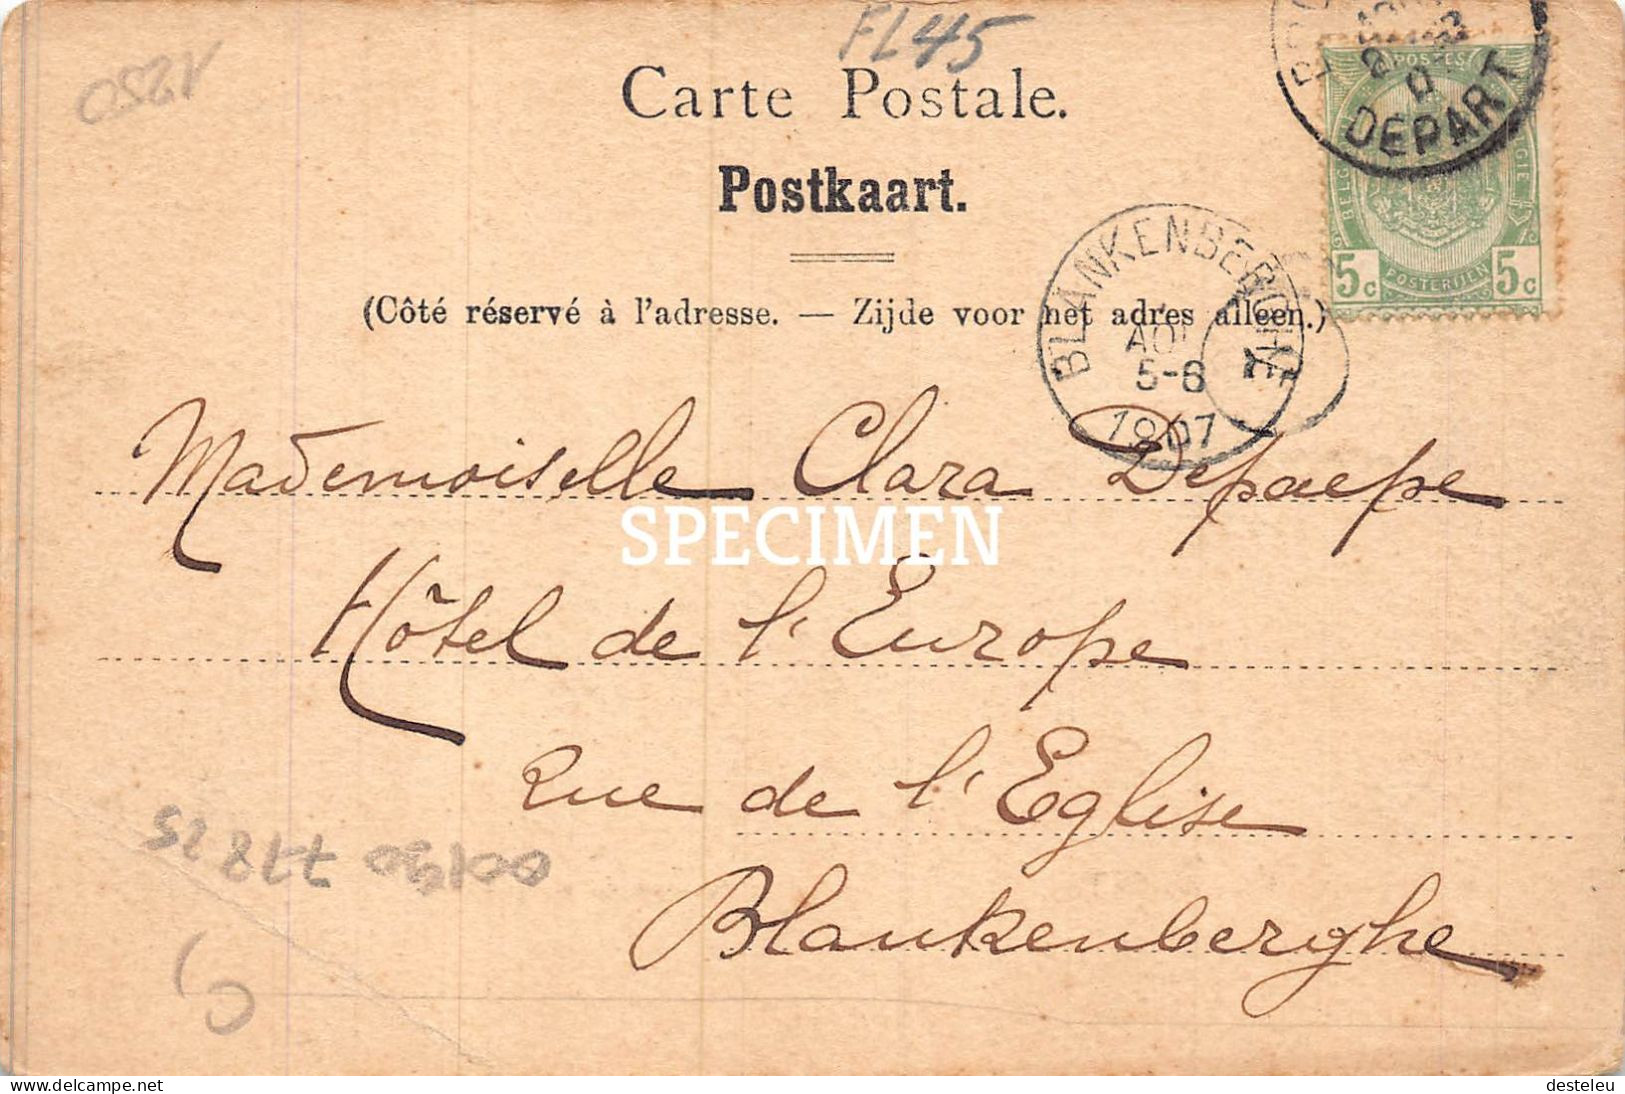 FL45
1250
Carte Postale.
Postkaart.
(Côté réservé à l'adresse. — Zijde voor het adres alleen.)
DEPART
POSTES
BELGIQUE
BELGIE
5c POSTERIJEN 5c
BLANKENBERGHE
AOU
5-6
1907
Mademoiselle Clara Depaepe
SPECIMEN
Hôtel de l'Europe
Rue de l'Eglise
Blankenberghe
delcampe.net
desteleu